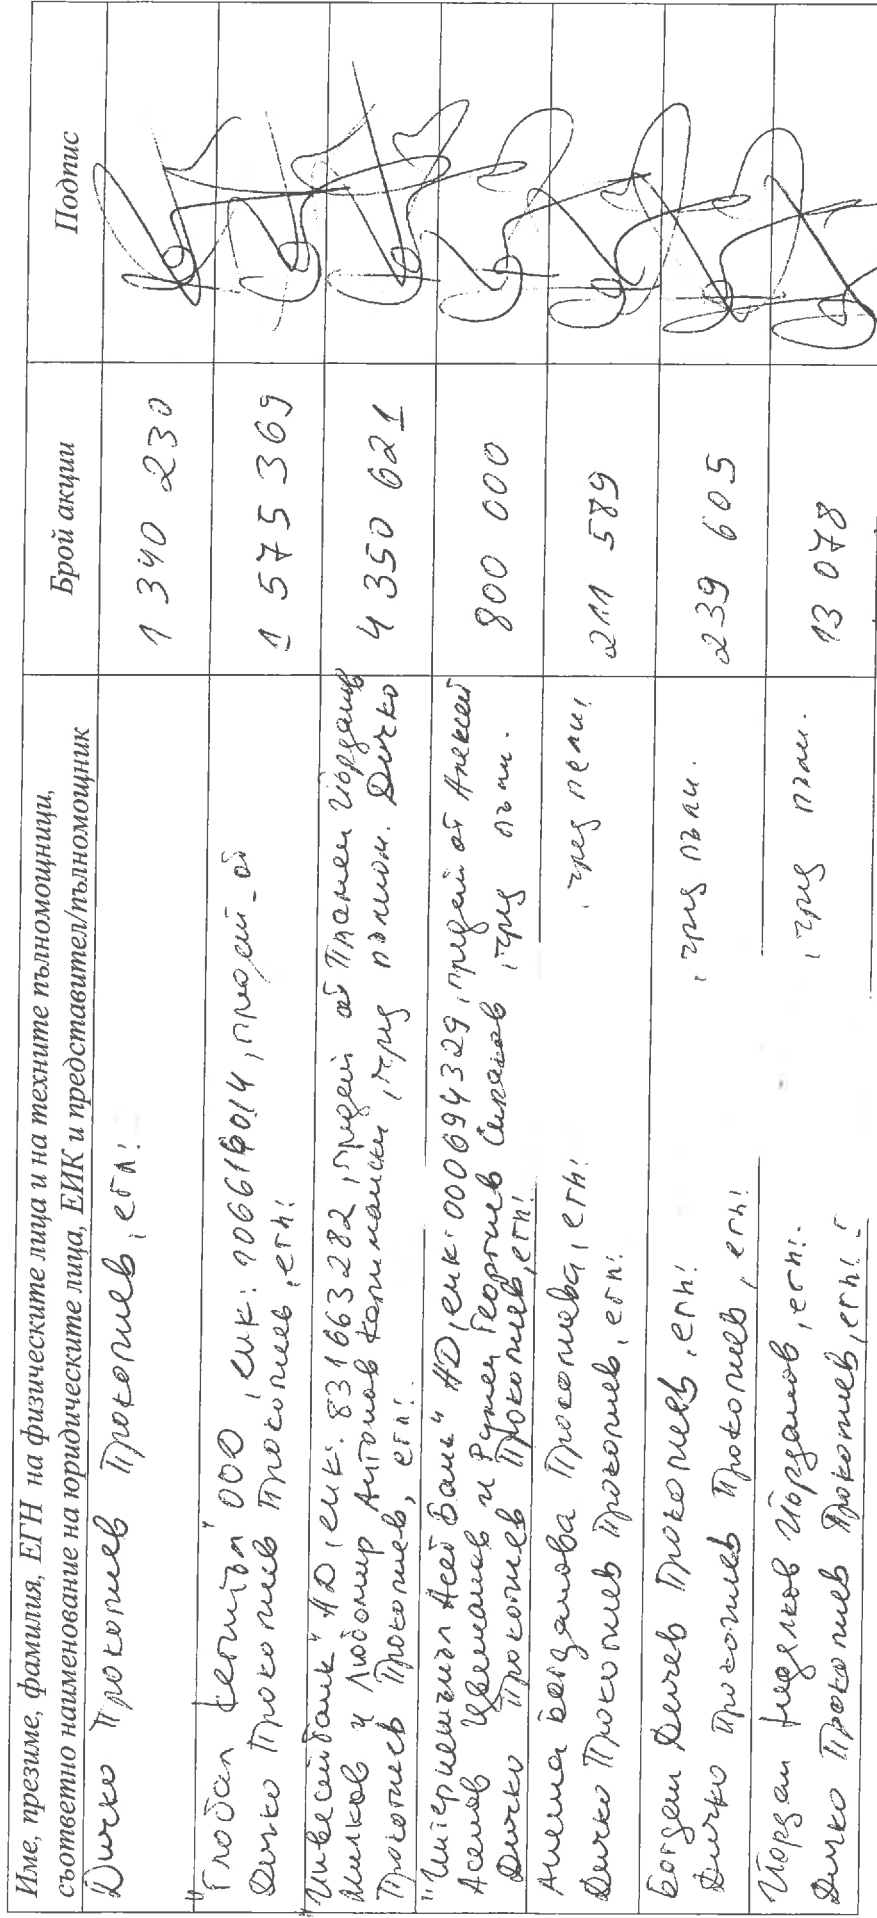 Име, презиме, фамилия, ЕГН на физическите лица и на техните пълномощници,
съответно наименование на юридическите лица, ЕИК и представител/пълномощник
Брой акции
Подпис
Дичко Прокопиев, егн:
1 340 230
"Глобал Кепитъл" ООД, еик: , предст. от
Дичко Прокопиев Прокопиев, егн:
1 575 369
"Инвестбанк" АД, еик: 831663282, предст. от Пламен Йорданов
Милков и Любомир Антонов , чрез пълном. Дичко
Прокопиев Прокопиев, егн:
4 350 621
"Интернешънъл Асет Банк" АД, еик: 000694329, предст. от Алексей
Асенов Цветанов и Румен Георгиев Сираков, чрез пълн.
Дичко Прокопиев Прокопиев, егн:
800 000
Анелиа Богданова Прокопиева, егн: , чрез пълн.
Дичко Прокопиев Прокопиев, егн:
211 589
Богдан Дичев Прокопиев, егн: , чрез пълн.
Дичко Прокопиев Прокопиев, егн:
239 605
Йордан Недялков Йорданов, егн: , чрез пълн.
Дичко Прокопиев Прокопиев, егн:
13 078